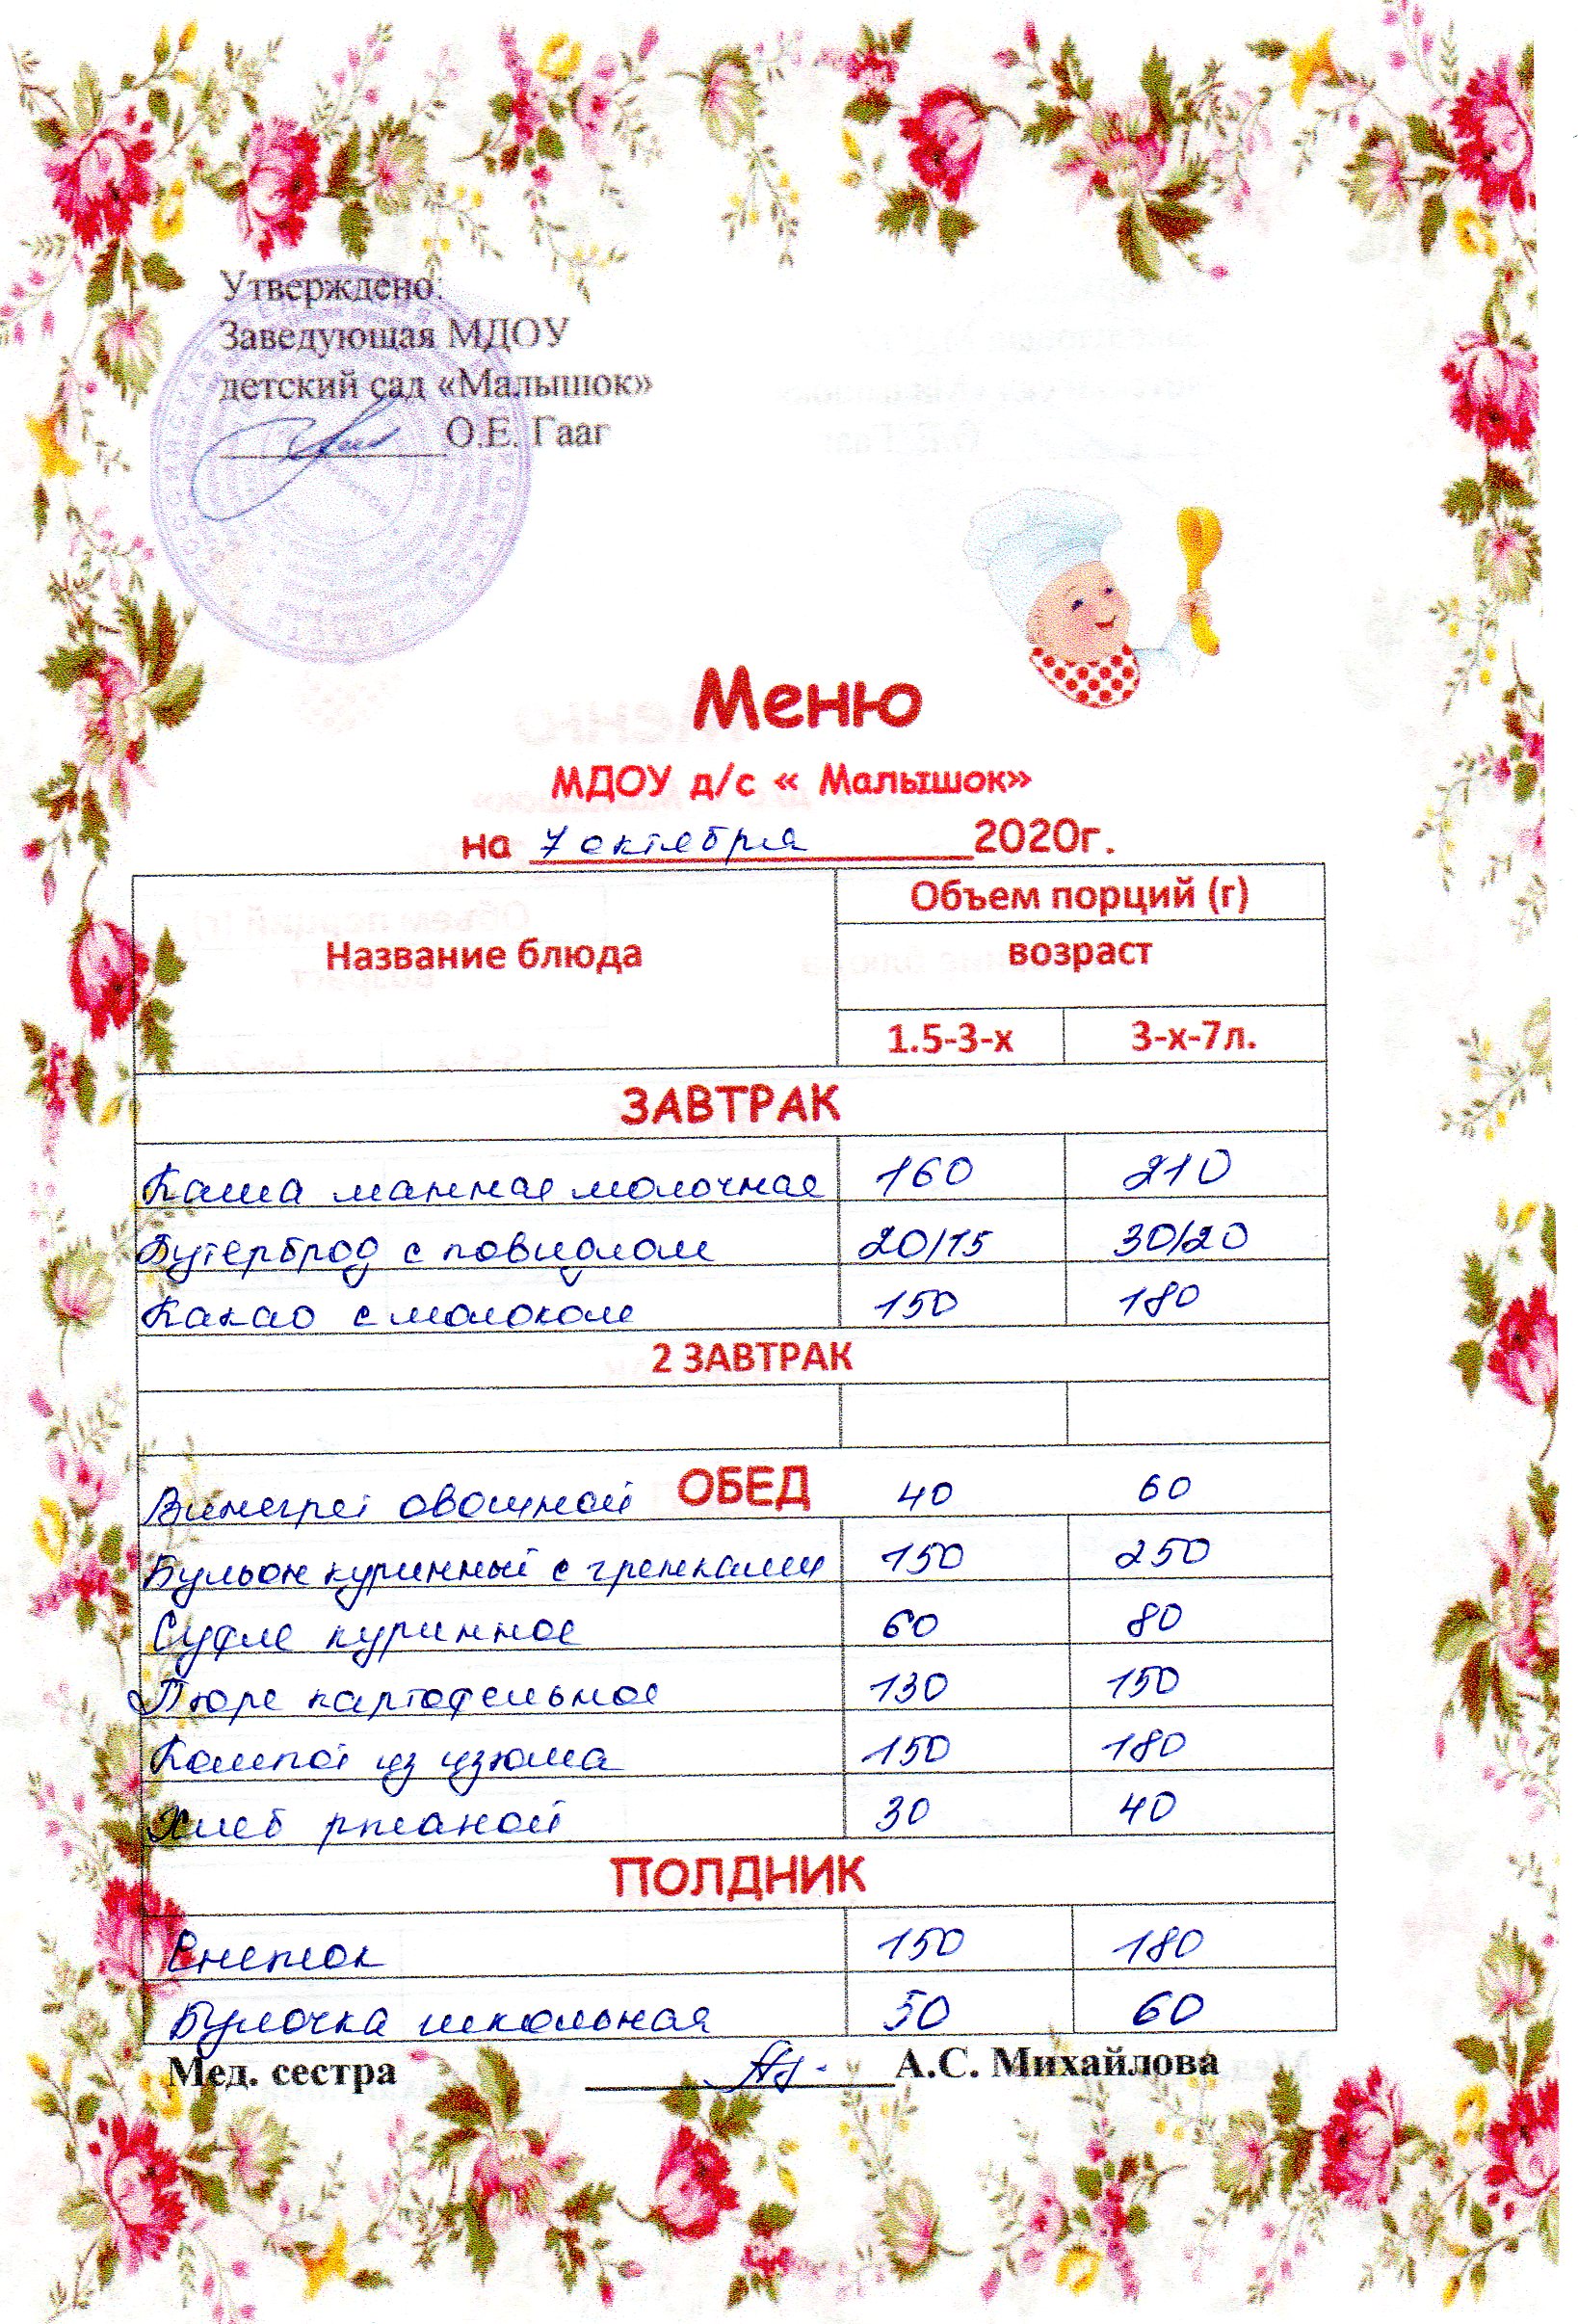 Утверждено:
Заведующая МДОУ
детский сад «Малышок»
О.Е. Гааг
Меню
МДОУ д/с « Малышок»
на 7 октября 2020г.
Название блюда
Объем порций (г)
возраст
1.5-3-х 3-х-7л.
ЗАВТРАК
Каша манная молочная 160 210
Бутерброд с повидлом 20/15 30/20
Какао с молоком 150 180
2 ЗАВТРАК
ОБЕД
Винегрет овощной 40 60
Бульон куринный с гренками 150 250
Суфле куринное 60 80
Пюре картофельное 130 150
Компот из изюма 150 180
Хлеб ржаной 30 40
ПОЛДНИК
Снежок 150 180
Булочка школьная 50 60
Мед. сестра А.С. Михайлова